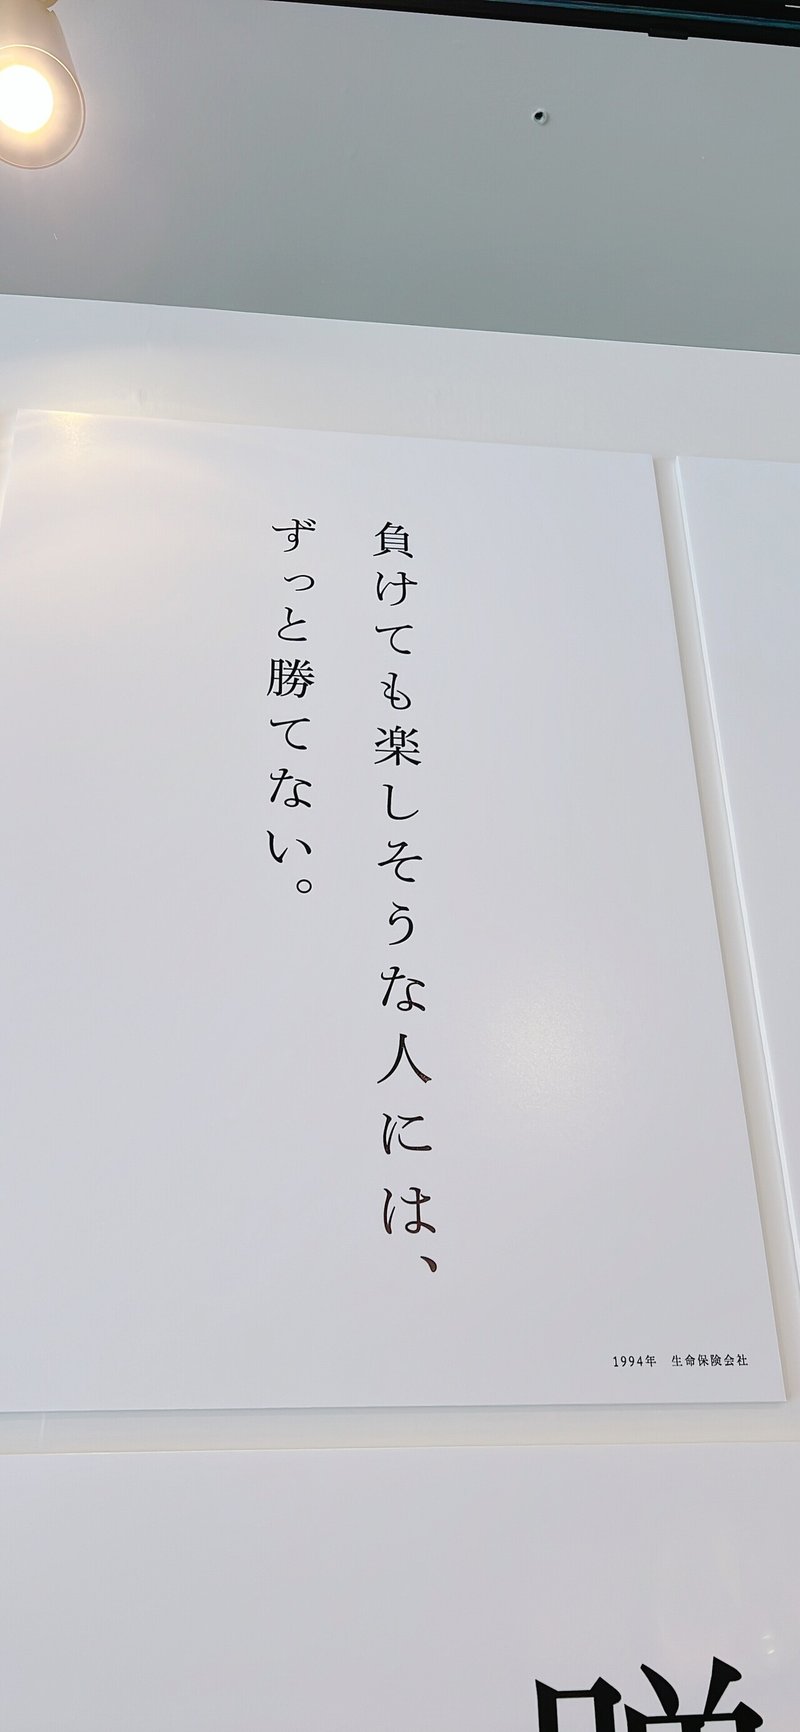 負けても楽しそうな人には、
ずっと勝てない。
1994年 生命保険会社